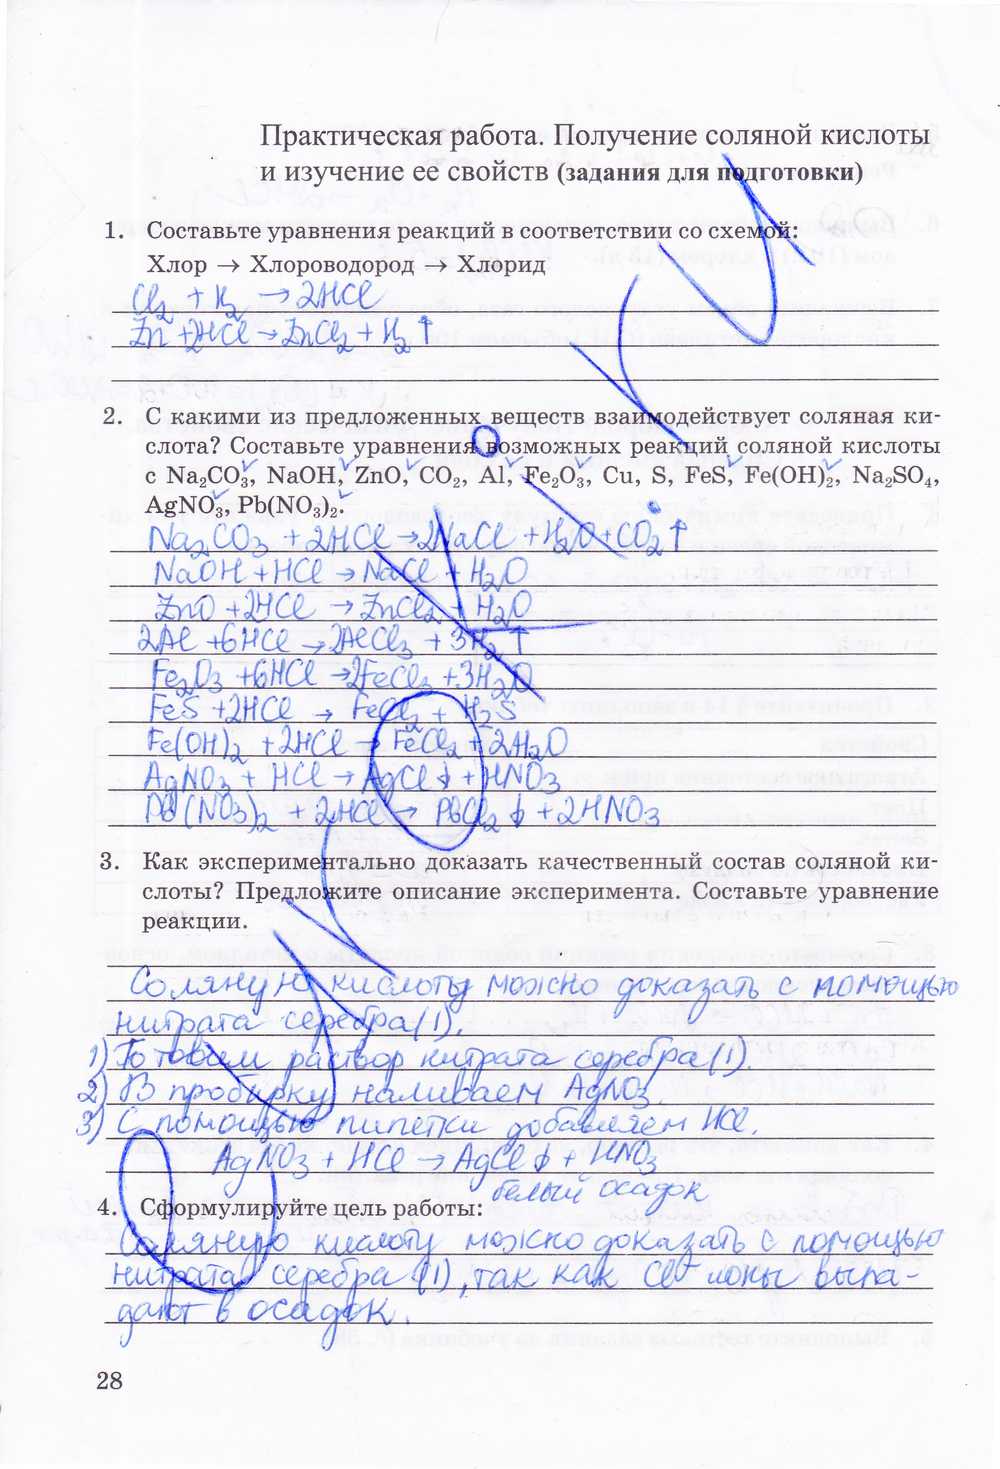 Практическая работа. Получение соляной кислоты
и изучение ее свойств (задания для подготовки)
1. Составьте уравнения реакций в соответствии со схемой:
Хлор → Хлороводород → Хлорид
Cl₂ + H₂ → 2HCl
Zn + 2HCl → ZnCl₂ + H₂↑
2. С какими из предложенных веществ взаимодействует соляная ки-
слота? Составьте уравнения возможных реакций соляной кислоты
с Na₂CO₃, NaOH, ZnO, CO₂, Al, Fe₂O₃, Cu, S, FeS, Fe(OH)₂, Na₂SO₄,
AgNO₃, Pb(NO₃)₂.
Na₂CO₃ + 2HCl → 2NaCl + H₂O + CO₂↑
NaOH + HCl → NaCl + H₂O
ZnO + 2HCl → ZnCl₂ + H₂O
2Al + 6HCl → 2AlCl₃ + 3H₂↑
Fe₂O₃ + 6HCl → 2FeCl₃ + 3H₂O
FeS + 2HCl → FeCl₂ + H₂S
Fe(OH)₂ + 2HCl → FeCl₂ + 2H₂O
AgNO₃ + HCl → AgCl↓ + HNO₃
Pb(NO₃)₂ + 2HCl → PbCl₂↓ + 2HNO₃
3. Как экспериментально доказать качественный состав соляной ки-
слоты? Предложите описание эксперимента. Составьте уравнение
реакции.
Соляную кислоту можно доказать с помощью
нитрата серебра (I).
1) Готовим раствор нитрата серебра (I).
2) В пробирку наливаем AgNO₃.
3) С помощью пипетки добавляем HCl.
AgNO₃ + HCl → AgCl↓ + HNO₃
белый осадок
4. Сформулируйте цель работы:
Соляную кислоту можно доказать с помощью
нитрата серебра (I), так как Cl⁻ ионы выпа-
дают в осадок.
28